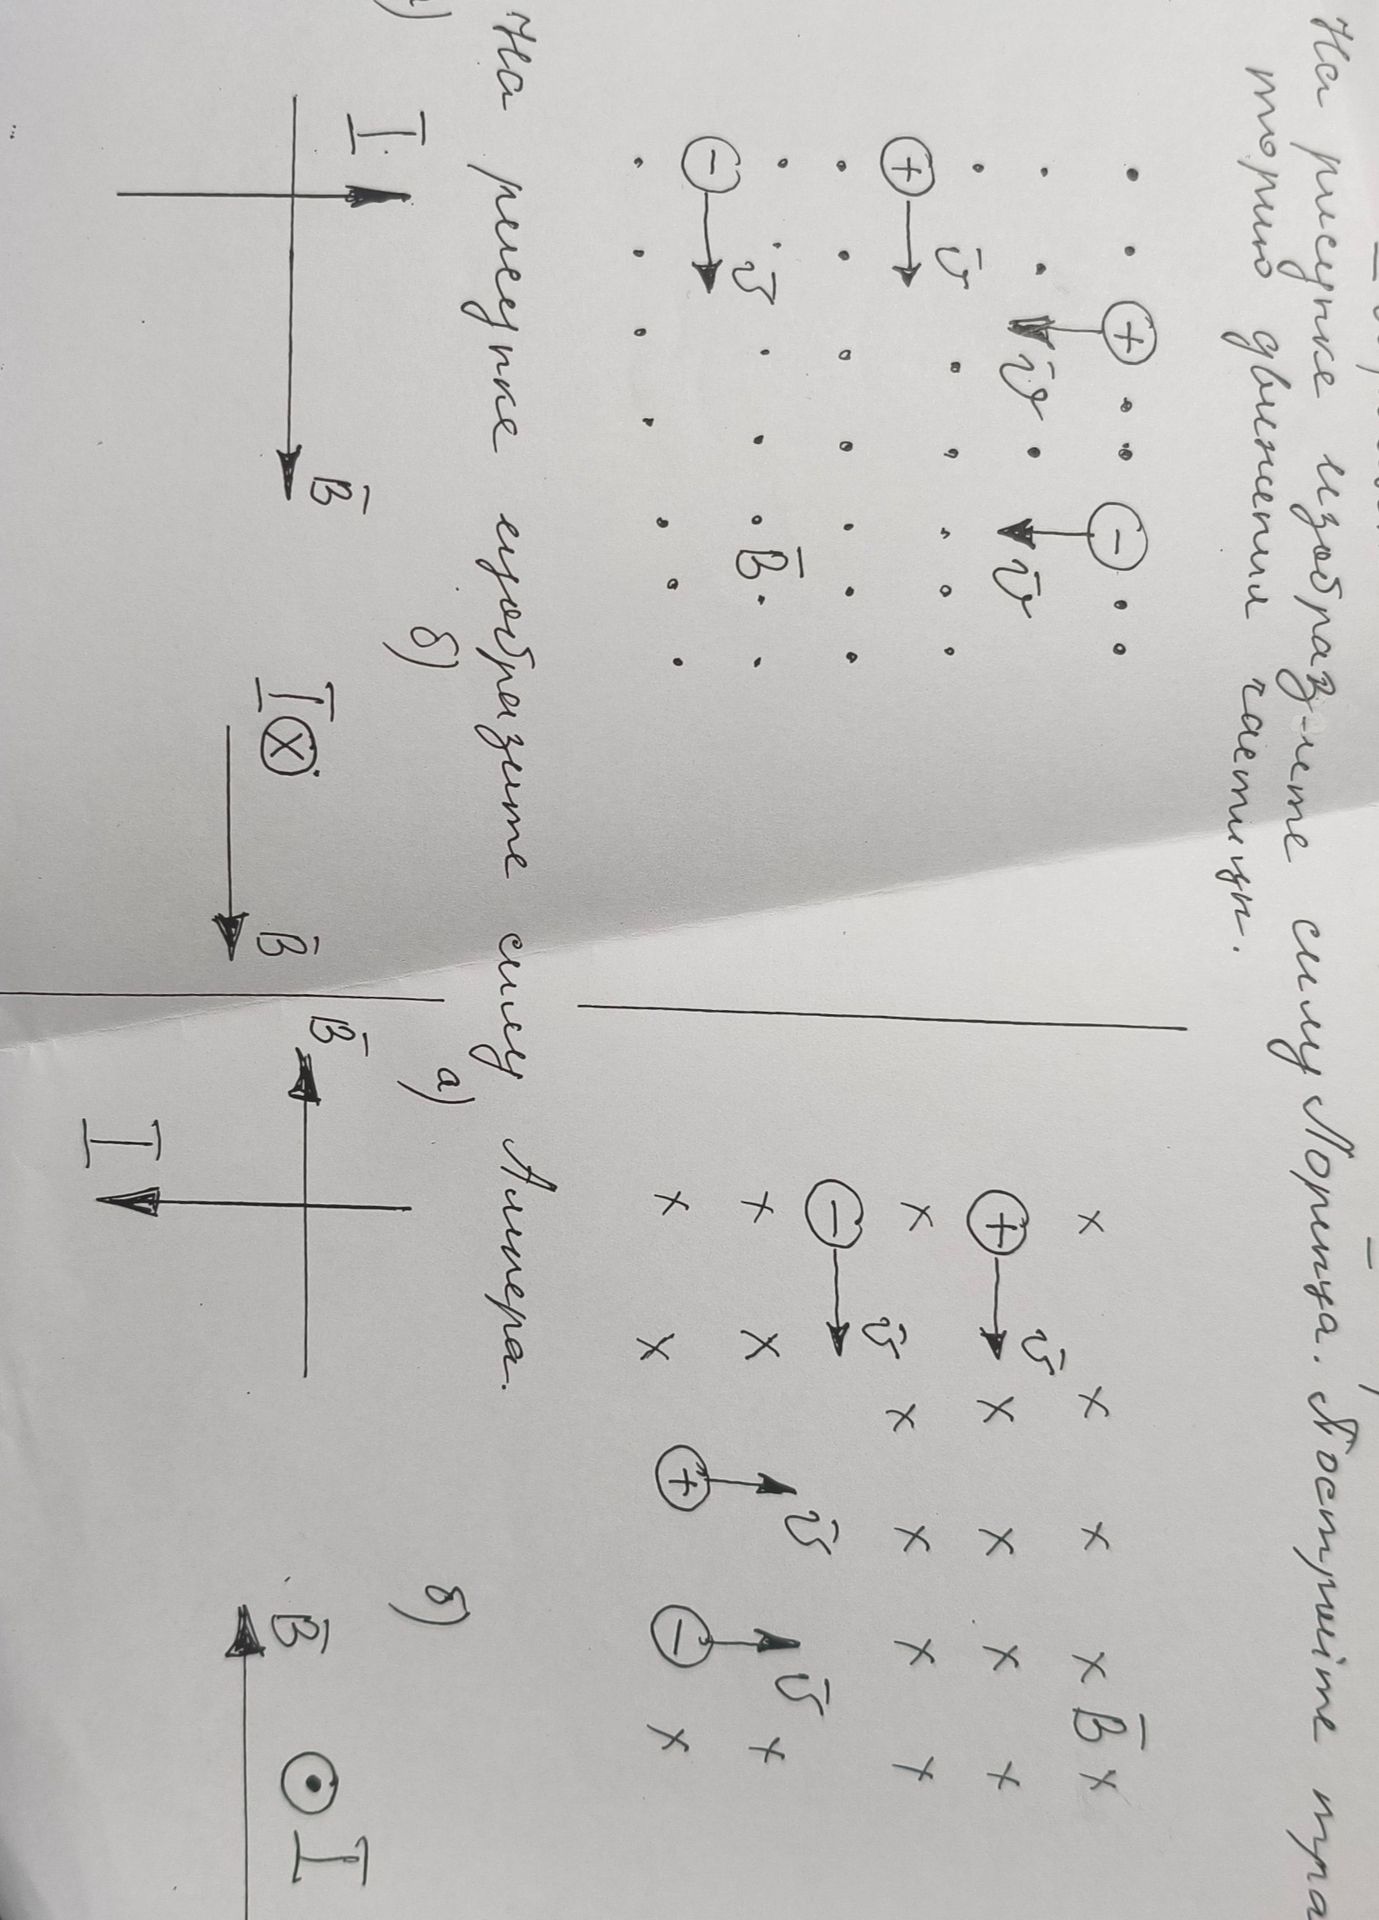 На рисунке изобразите силу Лоренца. Постройте тра
торию движения частицы.
+ − B̄ x
v̄ v̄
+ v̄ + v̄
− v̄
B̄ v̄ v̄
− v̄ + −
На рисунке изобразите силу Ампера.
б) а) б)
I B̄ I B̄ B̄ B̄ I
I